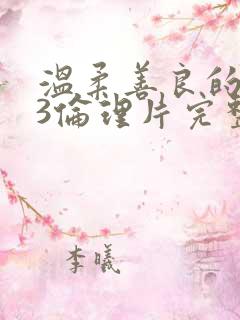 溫柔善良的
3倫理片完整
李曦